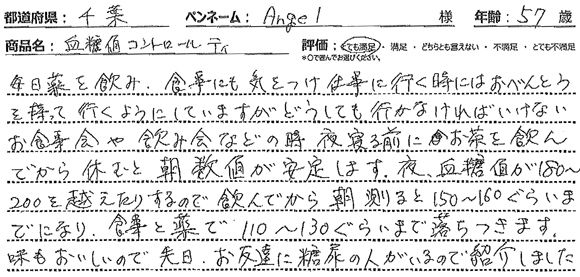 都道府県： 千葉 ペンネーム： Angel 様 年齢： 57 歳
商品名： 血糖値コントロールティ 評価： とても満足 ・ 満足 ・ どちらとも言えない ・ 不満足 ・ とても不満足
*○で囲んでお選びください。
毎日薬を飲み、食事にも気をつけ仕事に行く時にはおべんとう
を持って行くようにしていますがどうしても行かなければいけない
お食事会や飲み会などの時夜寝る前にお茶を飲ん
でから休むと朝数値が安定します。夜、血糖値が180〜
200を越えたりするので飲んでから朝測ると150〜160ぐらいま
でになり、食事と薬で110〜130ぐらいまで落ちつきます。
味もおいしいので先日、お友達に糖尿の人がいるので紹介しました